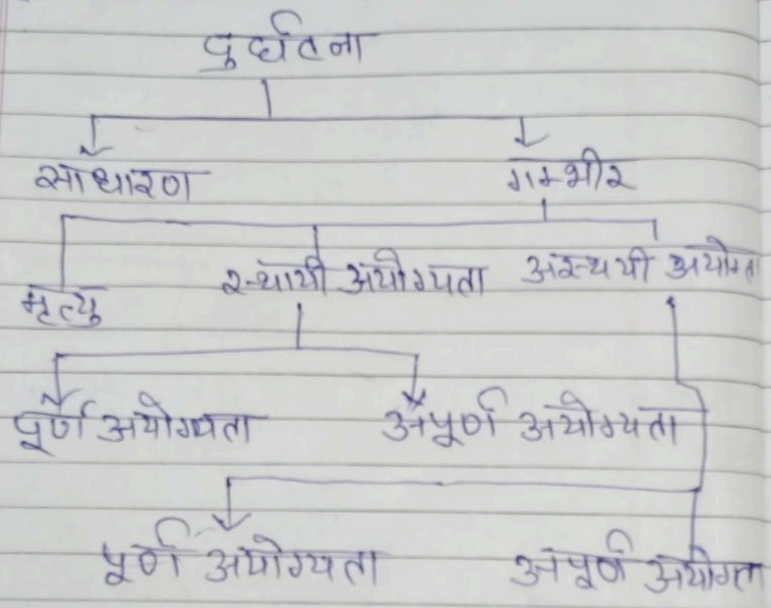 दुर्घटना
साधारण गम्भीर
मृत्यु स्थायी अयोग्यता अस्थयी अयोग्ता
पूर्ण अयोग्यता अपूर्ण अयोग्यता
पूर्ण अयोग्यता अपूर्ण अयोगता